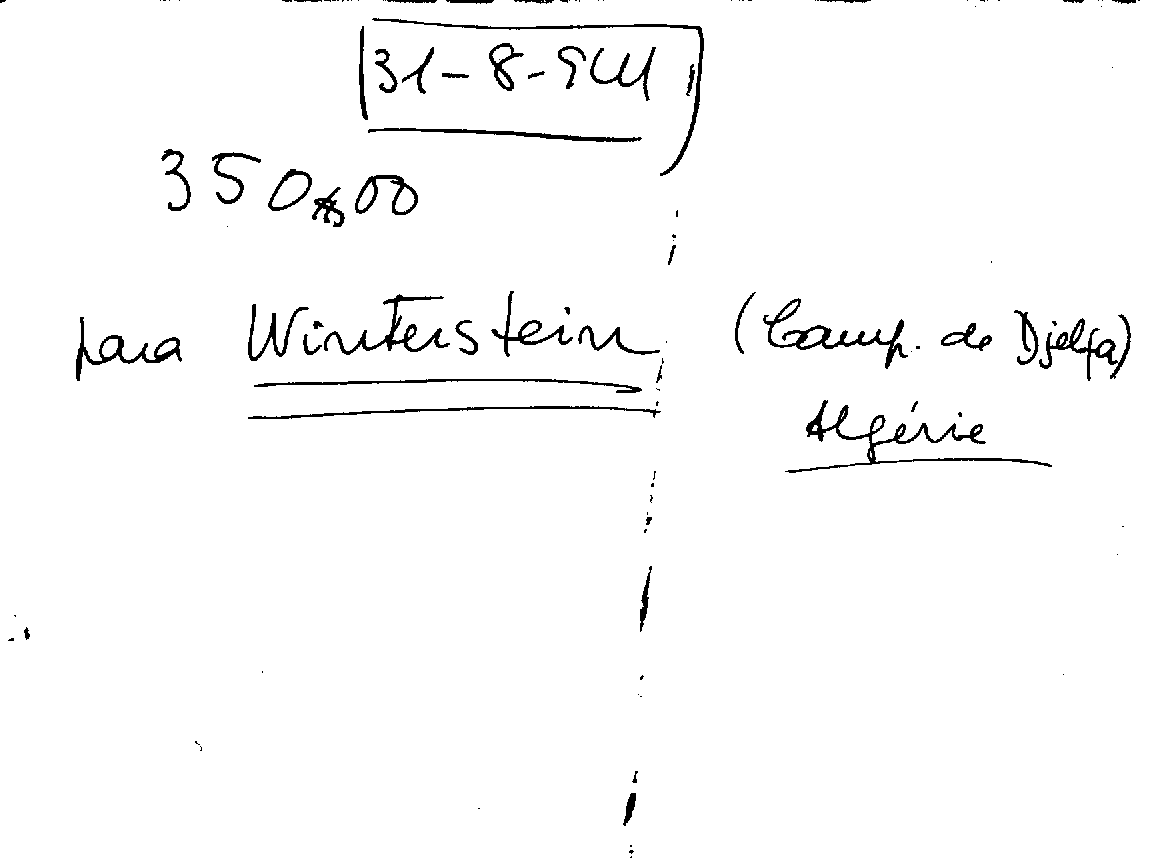 31-8-941
350$00
para Winterstein (Camp. de Djelfa)
Algérie